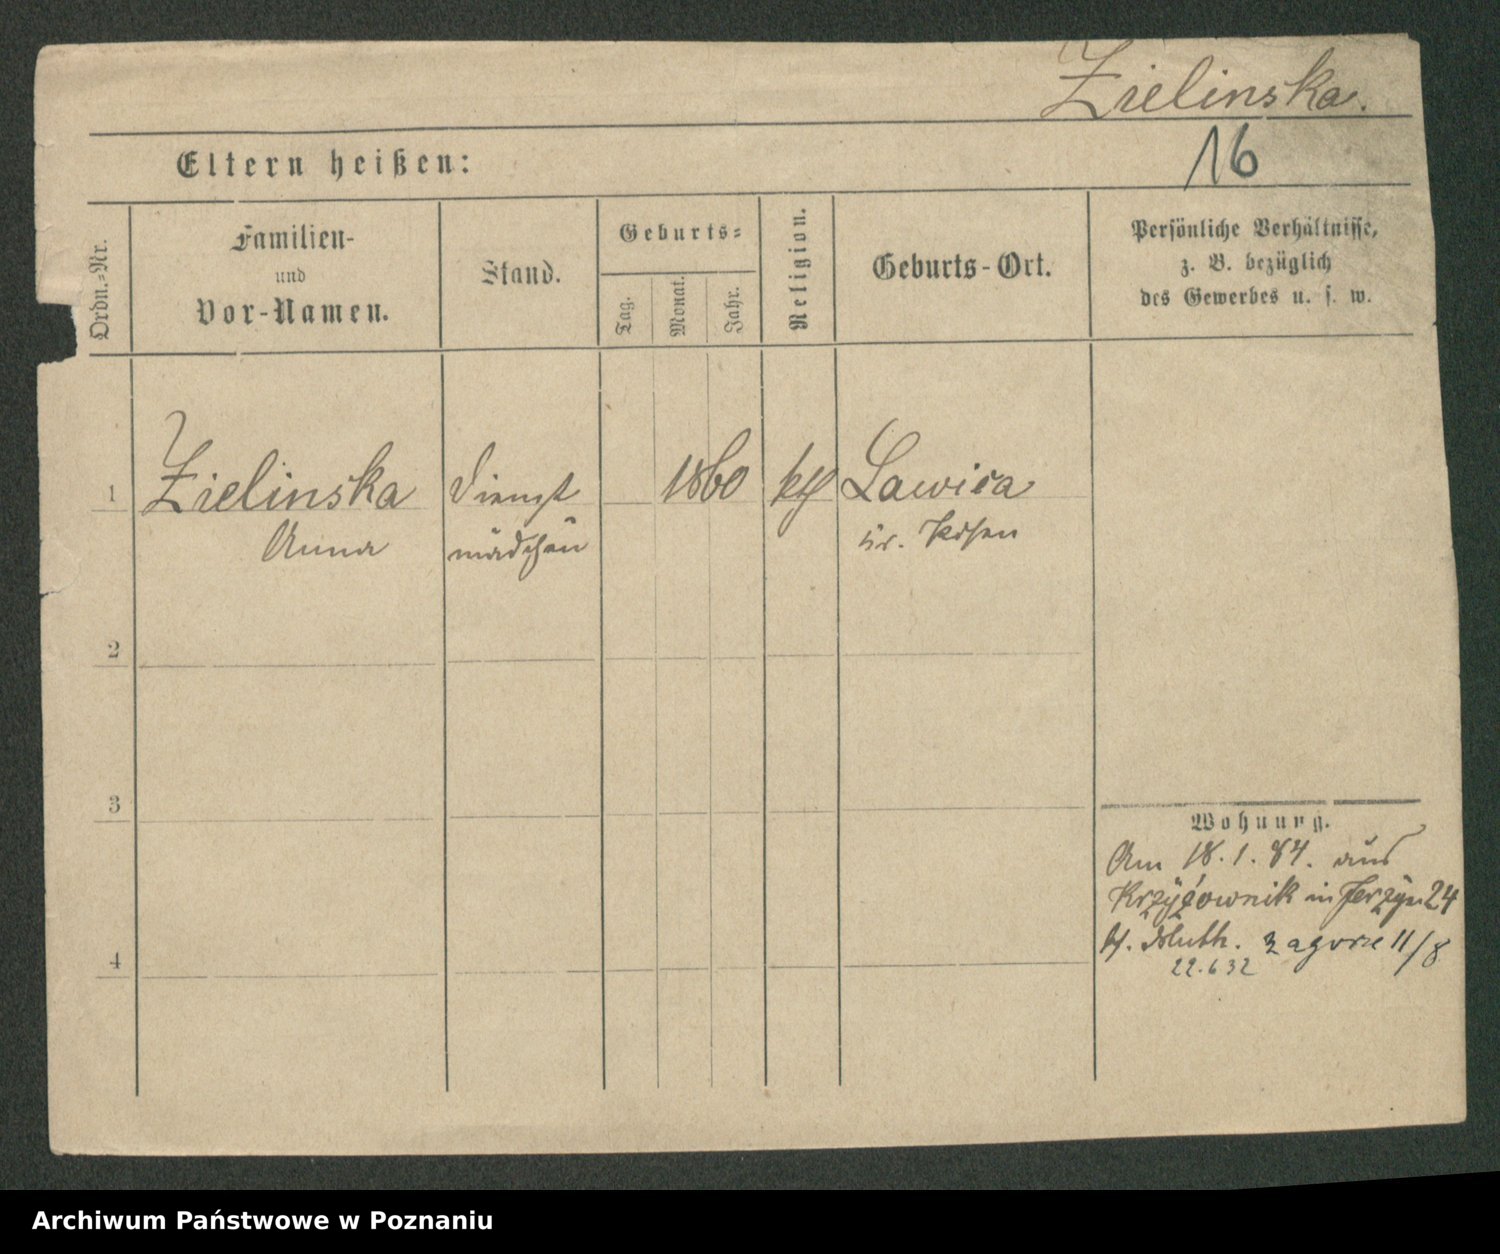 Zielinska.
Eltern heißen:
16
Ordn.-Nr.
Familien-
und
Vor-Namen.
Stand.
Geburts-
Tag.
Monat.
Jahr.
Religion.
Geburts-Ort.
Persönliche Verhältnisse,
z. B. bezüglich
des Gewerbes u. s. w.
1
Zielinska
Anna
Dienst
mädchen
1860
kth
Lawica
Kr. Posen
2
3
4
Wohnung.
Am 18.1.84. aus
Krzyżownik in Jerzyn 24
b. Bluth. Zagorze 11/8
22.6 32
Archiwum Państwowe w Poznaniu